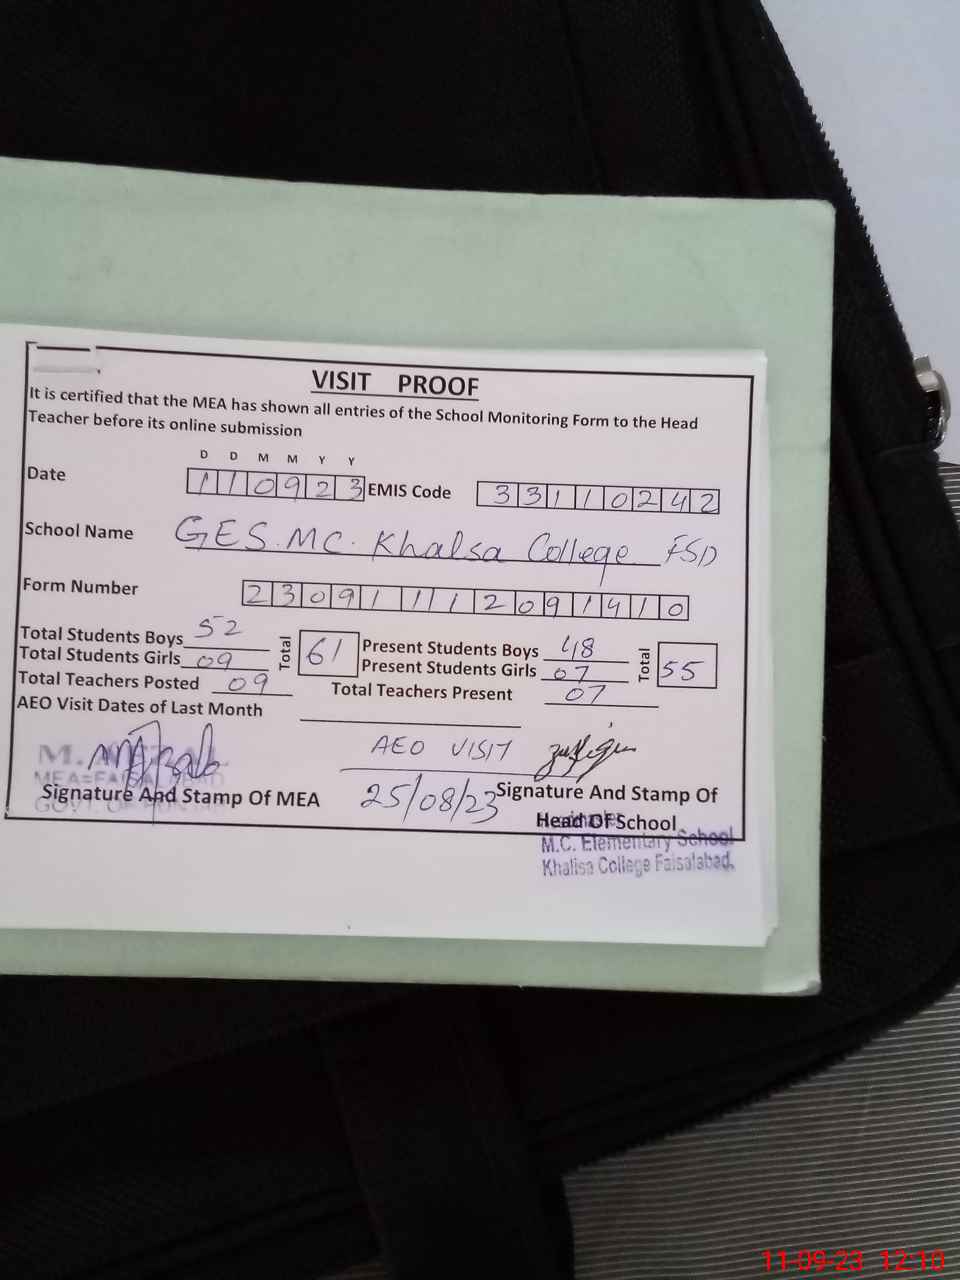 VISIT PROOF
It is certified that the MEA has shown all entries of the School Monitoring Form to the Head
Teacher before its online submission
D D M M Y Y
Date 110923 EMIS Code 33110242
School Name GES. MC. Khalsa College FSD
Form Number 230911112091410
Total Students Boys 52 Total 61 Present Students Boys 48 Total 55
Total Students Girls 09 Present Students Girls 07
Total Teachers Posted 09 Total Teachers Present 07
AEO Visit Dates of Last Month
AEO VISIT
25/08/23
Signature And Stamp Of MEA
Signature And Stamp Of
Head Of School
M.C. Elementary School
Khalisa College Faisalabad.
11-09-23 12:10